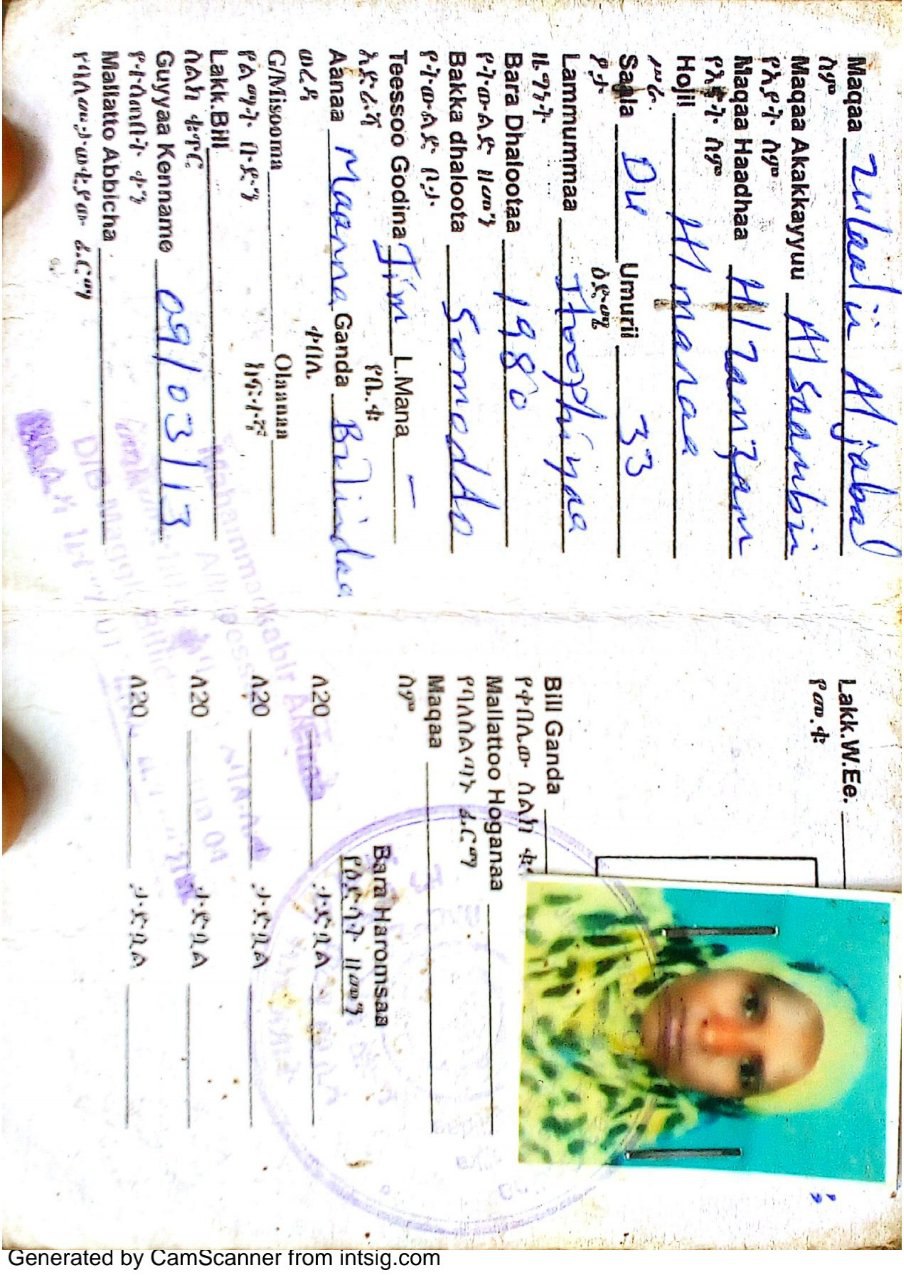 Maqaa Zulaalii Aljabal
ስም
Maqaa Akakkayyuu A/Saambii
የአያት ስም
Maqaa Haadhaa H/Zamzam
የእናት ስም
Hojil H/manaa
ሥራ
Saala Du Umurii 33
ፆታ ዕድሜ
Lammummaa Itoophiyaa
ዜግነት
Bara Dhalootaa 1980
የትውልድ ዘመን
Bakka dhaloota Somoddo
የትውልድ ቦታ
Teessoo Godina Jim L.Mana —
አድራሻ የቤ.ቁ
Aanaa Maanna Ganda
ወረዳ ቀበሌ
G/Misooma Olaanaa
የልማት ቡድን ከፍተኛ
Lakk.Bill
ስልክ ቁጥር
Guyyaa Kenname 09/03/13
የተሰጠበት ቀን
Mallatto Abbicha
የባለመታወቂያው ፊርማ
Lakk.W.Ee.
የመ.ቁ
Bill Ganda
የቀበሌው ስልክ
Mallattoo Hoganaa
የባለስልጣኑ ፊርማ
Maqaa
ስም
Bara Haromsaa
የዕድሳት ዘመን
ለ20 ታድሷል
ለ20 ታድሷል
ለ20 ታድሷል
ለ20 ታድሷል
Generated by CamScanner from intsig.com